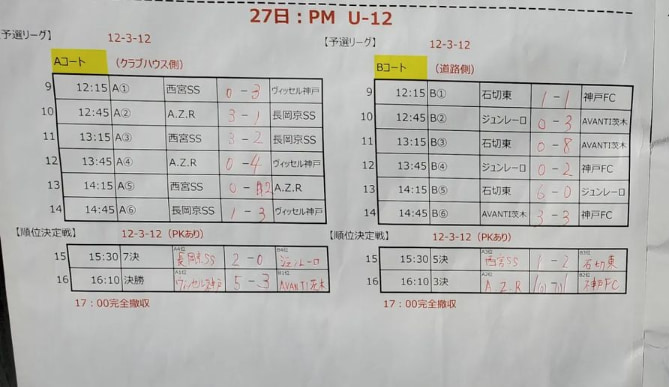 27日：PM U-12
【予選リーグ】 12-3-12
Aコート （クラブハウス側）
9 12:15 A① 西宮SS 0 - 3 ヴィッセル神戸
10 12:45 A② A.Z.R 3 - 1 長岡京SS
11 13:15 A③ 西宮SS 3 - 2 長岡京SS
12 13:45 A④ A.Z.R 0 - 4 ヴィッセル神戸
13 14:15 A⑤ 西宮SS 0 - 2 A.Z.R
14 14:45 A⑥ 長岡京SS 1 - 3 ヴィッセル神戸
【順位決定戦】 12-3-12 （PKあり）
15 15:30 7決 A4位 長岡京SS 2 - 0 B4位 ジュンレーロ
16 16:10 決勝 A1位 ヴィッセル神戸 5 - 3 B1位 AVANTI茨木
17：00完全撤収
【予選リーグ】 12-3-12
Bコート （道路側）
9 12:15 B① 石切東 1 - 1 神戸FC
10 12:45 B② ジュンレーロ 0 - 3 AVANTI茨木
11 13:15 B③ 石切東 0 - 8 AVANTI茨木
12 13:45 B④ ジュンレーロ 0 - 2 神戸FC
13 14:15 B⑤ 石切東 6 - 0 ジュンレーロ
14 14:45 B⑥ AVANTI茨木 3 - 3 神戸FC
【順位決定戦】 12-3-12 （PKあり）
15 15:30 5決 A3位 西宮SS 1 - 2 B3位 石切東
16 16:10 3決 A2位 A.Z.R B2位 神戸FC
17：00完全撤収